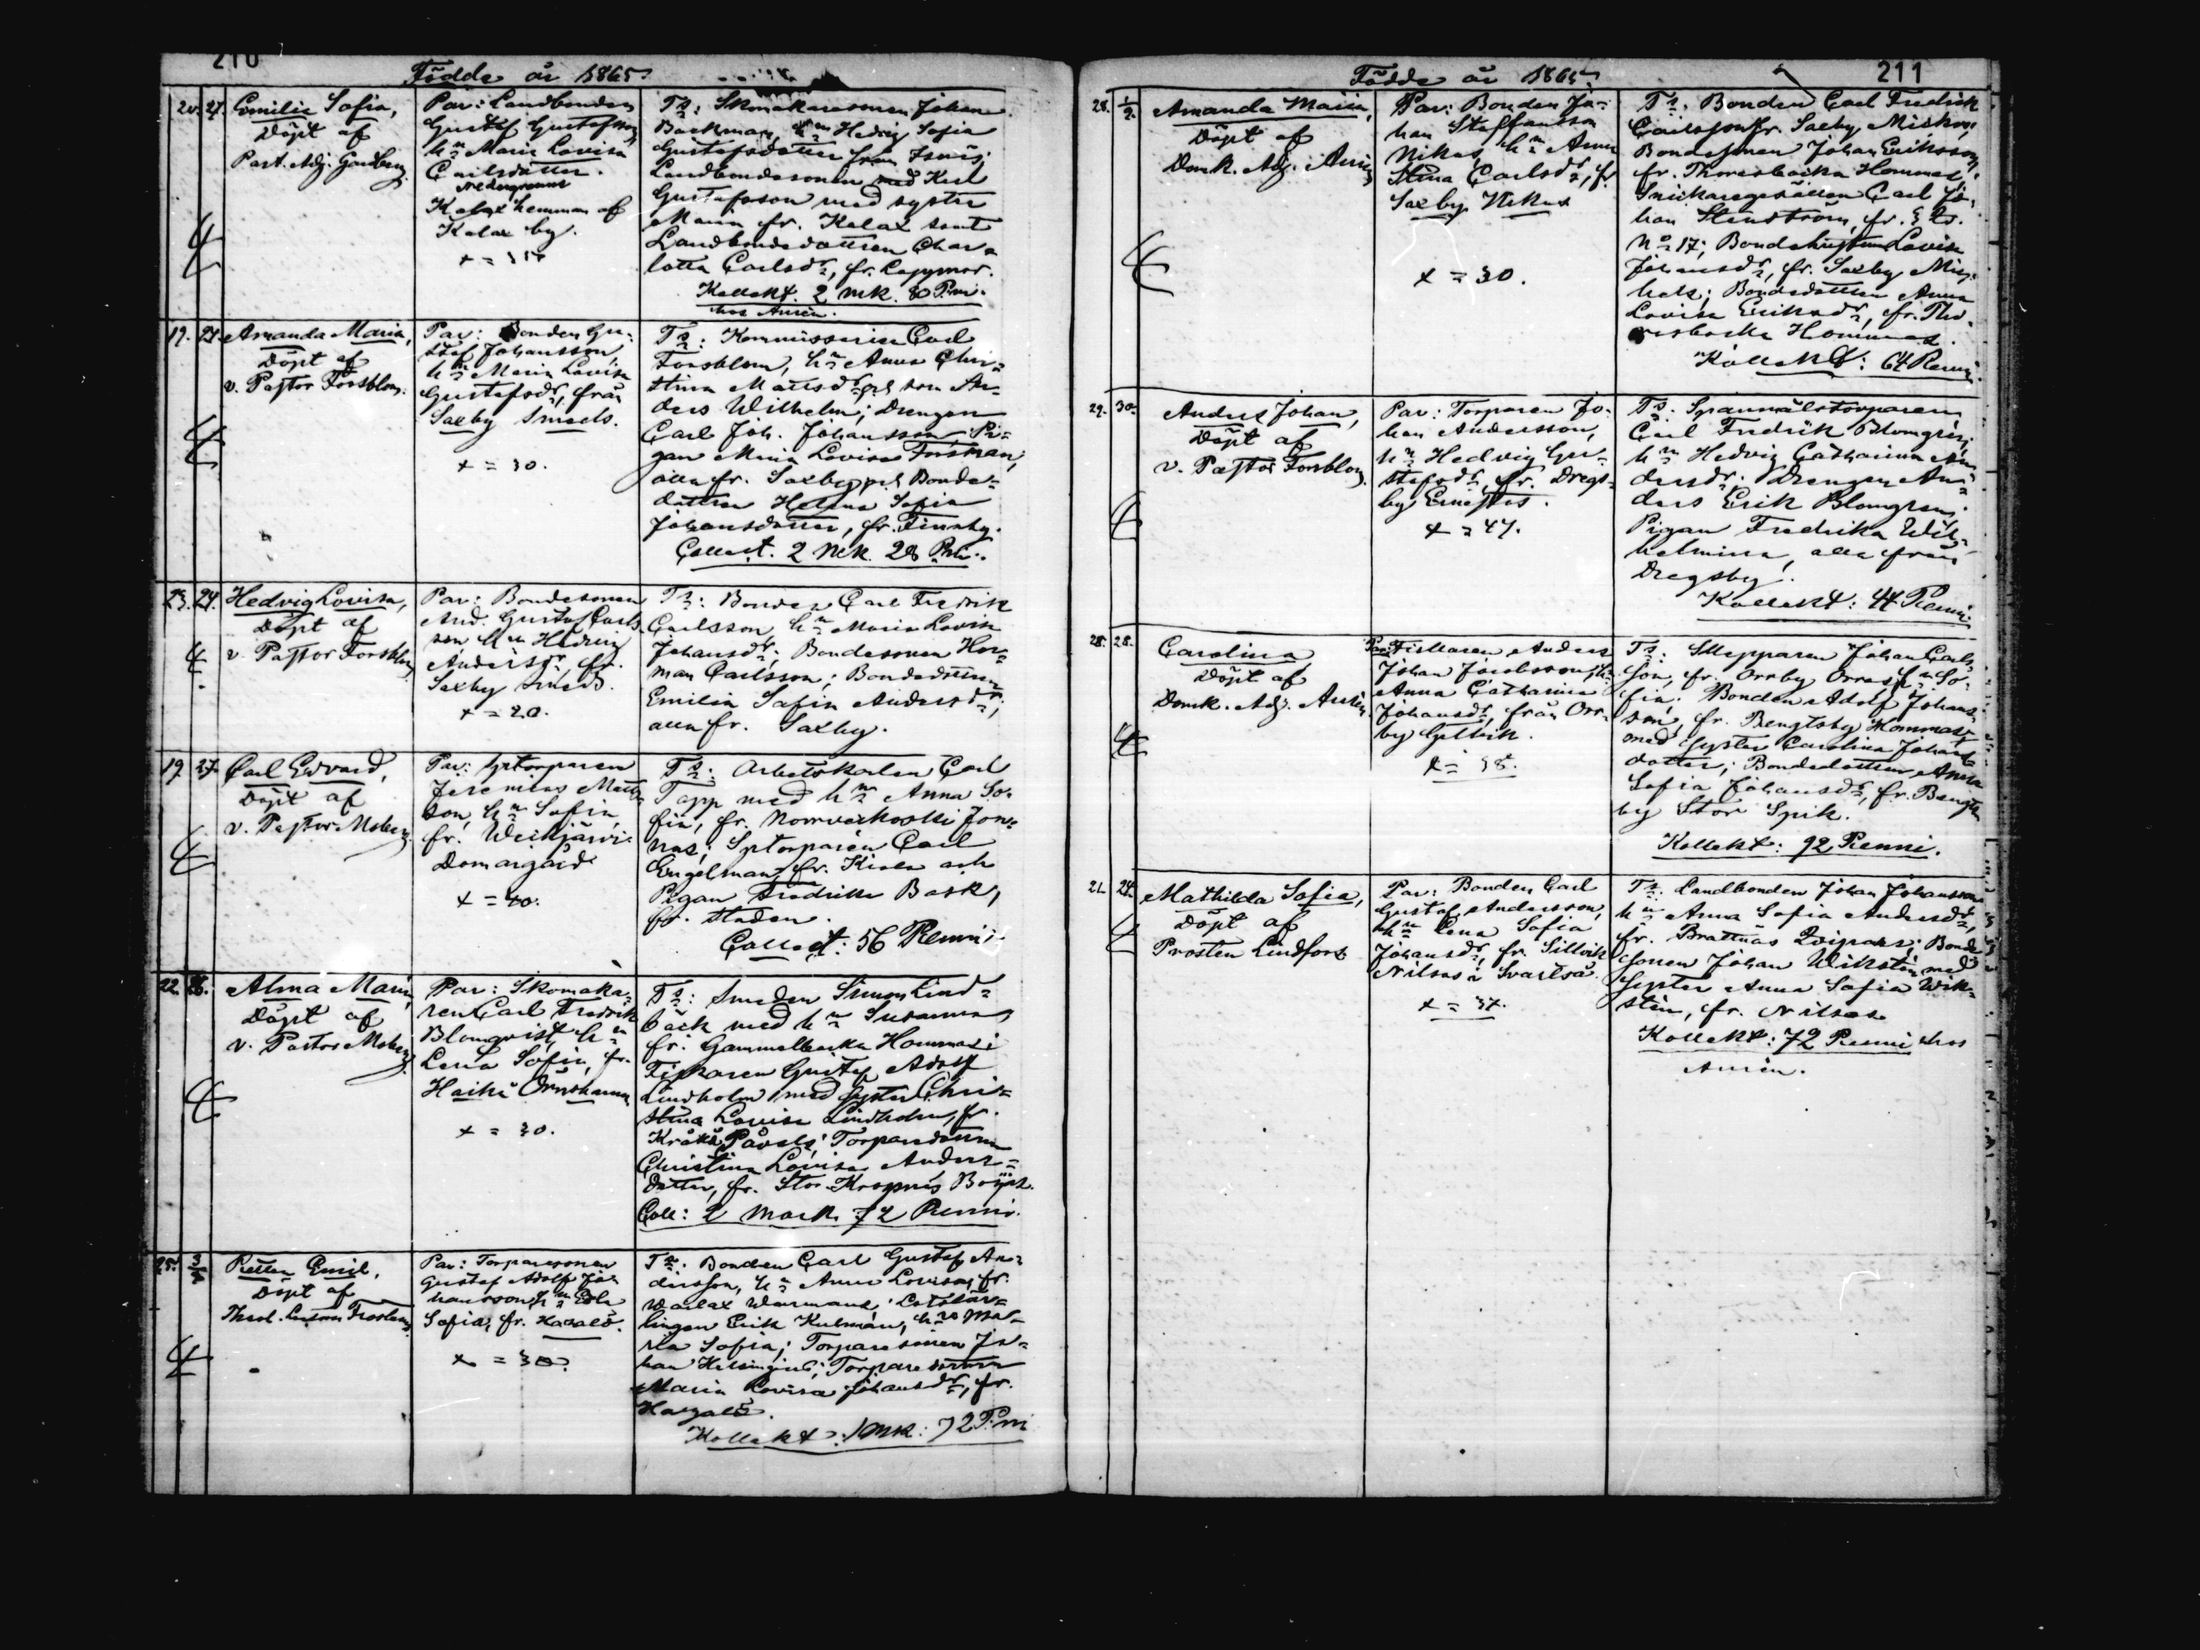 210
Födde år 1865.
20. 27. Emilia Sofia,
Döpt af
Past. Adj.
Par: Landbonden
Gustaf Gustafsson,
h:u Maria Lovisa
Carlsdotter.
Kalax hemman af
Kalax by.
Ts: Skomakaresonen Johan
Backman, h:u Hedvig Sofia
Gustafsdotter från Isnäs;
Landbondesonen Karl
Gustafsson med syster
Maria fr. Kalax samt
Landbondedottren Char-
lotta Carlsdr, fr.
Kollekt. 2 mk. 80 P:ni.
hos Aurén.
19. 27. Amanda Maria,
Döpt af
v. Pastor Forsblom.
Par: Bonden Gu-
staf Johansson,
h:u Maria Lovisa
Gustafsdr, från
Saxby Smeds.
x = 30.
Ts: Kommissarien Carl
Forsblom, h:u Anna Chri-
stina Mattsdr och son An-
ders Wilhelm; Drengen
Carl Joh. Johansson Pi-
gan Maria Lovisa Forsman,
alla fr. Saxby och Bonde-
dottren Helena Sofia
Johansdotter, fr. Finnby.
Collect. 2 mk. 28 P:ni.
23. 27. Hedvig Lovisa,
Döpt af
v. Pastor Forsblom
Par: Bondesonen
And. Gustaf Carls-
son, h:u Hedvig
Andersdr, fr.
Saxby Smeds.
x = 20.
Ts: Bonden Carl Fredrik
Carlsson h:u Maria Lovisa
Johansdr; Bondesonen Her-
man Carlsson; Bondedottren
Emilia Sofia Andersdr,
alla fr. Saxby.
19 27. Carl Edvard,
Döpt af
v. Pastor Moberg.
Par: Sptorparen
Jeremias Matts-
son, h:u Sofia,
fr. Weikjärvi
Domargård
x = 40.
Ts: Arbetskarlen Carl
Tapp med h:u Anna So-
fia, fr. Norrveckoski Jon-
nas; Sptorparen Carl
Engelman, fr. Kiala och
Pigan Fredrika Bask,
fr. staden.
Collect: 56 Penni.
22. Alma Maria,
Döpt af
v. Pastor Moberg.
Par: Skomaka-
ren Carl Fredrik
Blomqvist, h:u
Lena Sofia, fr.
Haikå Örnshamn
x = 30.
Ts: Smeden Simon Lind-
bäck med h:u Susanna,
fr. Gammelbacka Hommas;
Fiskaren Gustaf Adolf
Lindholm med syster Chri-
stina Lovisa Lindholm, fr.
Kråkö Påvals; Torparedottren
Christina Lovisa Anders-
dotter, fr. Stor-Kroxnäs
Coll: 2 Mark 72 Penni.
25. Emil,
Döpt af
Par: Torparesonen
Gustaf Adolf Jo-
hansson, h:u Edla
Sofia, fr.
x = 30.
Ts: Bonden Carl Gustaf An-
dersson, h:u Anna Lovisa, fr.
Warlax Warmans; Lotslär-
lingen Erik Kulman, h:u Ma-
ria Sofia; Torparesonen Jo-
han Helsingius; Torparedottren
Maria Lovisa Johansdr, fr.
Kollekt: 1 mk: 72 P:ni
211
Födde år 1865.
28. 1/2. Amanda Maria,
Döpt af
Domk. Adj. Aurén
Par: Bonden Jo-
han Steffansson
Nikus, h:u Anna
Stina Carlsdr, fr.
Saxby Nikus
x = 30.
Ts: Bonden Carl Fredrik
Carlsson fr. Saxby Mickos;
Bondesonen Johan Eriksson,
fr. Thorsbacka Hommas;
Snickaregesällen Carl Jo-
han Stenström, fr.
No 17; Bondehustrun Lovisa
Johansdr, fr. Saxby Mic-
kels; Bondedottren Anna
Lovisa Eriksdr, fr. Tho-
rsbacka Hommas.
Kollekt: 64 Penni.
29. 30. Anders Johan,
Döpt af
v. Pastor Forsblom.
Par: Torparen Jo-
han Andersson,
h:u Hedvig Gu-
stafsdr, fr. Dregs-
by Ernestas.
x = 47.
Ts: Spannmålstorparen
Carl Fredrik Blomgrén,
h:u Hedvig Catharina An-
dersdr; Drengen An-
ders Erik Blomgren;
Pigan Fredrika Wil-
helmina, alla från
Dregsby.
Kollekt: 44 Penni.
28. 28. Carolina
Döpt af
Domk. Adj. Aurén
Par: Fiskaren Anders
Johan Jacobsson, h:u
Anna Catharina
Johansdr, från Orr-
by Gellvik.
x = 38.
Ts: Skepparen Johan Carls-
son, fr. Orrby Orras, h:u So-
fia; Bonden Adolf Johans-
son, fr. Bengtsby Hommas
med Syster Carolina Johans-
dotter; Bondedottren Anna
Sofia Johansdr, fr. Bengts-
by Stor Spik.
Kollekt: 92 Penni.
21. 24. Mathilda Sofia,
Döpt af
Prosten Lindfors
Par: Bonden Carl
Gustaf Andersson,
h:u Lena Sofia
Johansdr, fr. Sillvik
Nilsas å Svartså
x = 37.
Ts: Landbonden Johan Johansson
h:u Anna Sofia Andersdr,
fr. Brattnäs; Bonde-
sonen Johan Wikstén med
Syster Anna Sofia Wik-
stén, fr. Nilsas
Kollekt: 72 Penni hos
Aurén.